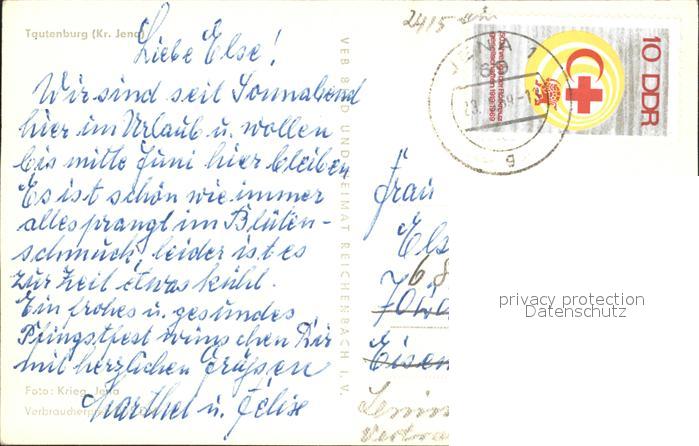 Tautenburg (Kr. Jena)
Liebe Else!
Wir sind seit Sonnabend
hier im Urlaub u. wollen
bis mitte Juni hier bleiben
Es ist schön wie immer
alles prangt im Blüten-
schmuck, leider ist es
zur Zeit etwas kühl.
Ein frohes u. gesundes
Pfingstfest wünschen Dir
mit herzlichen Grüßen
Marthel u. Felise
Foto: Krieg, Jena
Verbraucherp
VEB BILD UND HEIMAT REICHENBACH I. V.
2415
JENA 1
69
23.
g
10 DDR
Frau
Els
68
Eisen
privacy protection
Datenschutz